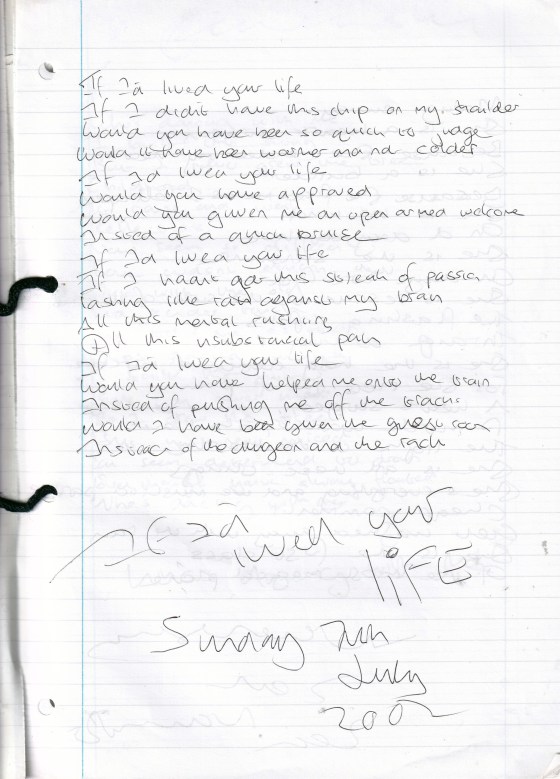 If I'd lived your life
If I didn't have this chip on my shoulder
Would you have been so quick to judge
Would it have been warmer and colder
If I'd lived your life
Would you have approved
Would you given me an open armed welcome
Instead of a quick bruise
If I'd lived your life
If I hadn't got this streak of passion
lashing like rain against my brain
All this mental rushing
All this unsubstancial pain
If I'd lived your life
Would you have helped me onto the train
Instead of pushing me off the tracks
Would I have been given the guest room
Instead of the dungeon and the rack
If I'd
lived your
LiFE
Sunday 7th
July
2002